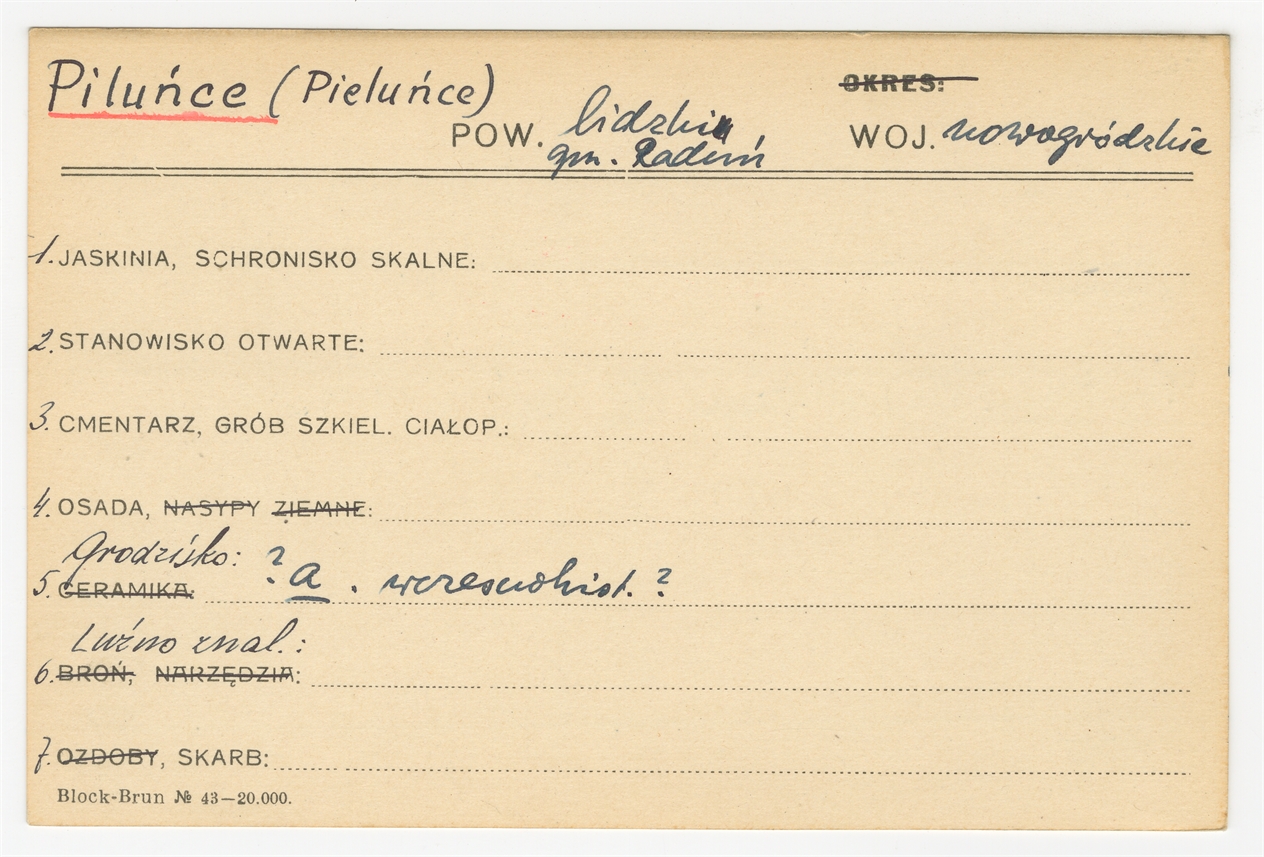 Piluńce (Pieluńce)
OKRES:
POW. lidzki, WOJ. nowogródzkie
gm. Raduń
1. JASKINIA, SCHRONISKO SKALNE:
2. STANOWISKO OTWARTE:
3. CMENTARZ, GRÓB SZKIEL. CIAŁOP.:
4. OSADA, NASYPY ZIEMNE:
Grodzisko: ? a . wczesnohist. ?
5. CERAMIKA:
Luźno znal.:
6. BROŃ, NARZĘDZIA:
7. OZDOBY, SKARB:
Block-Brun № 43—20.000.